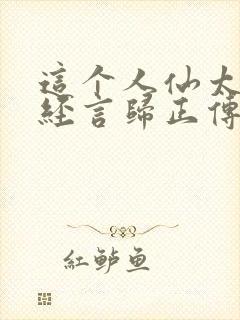 這个人仙太
經言歸正傳
紅鲈魚